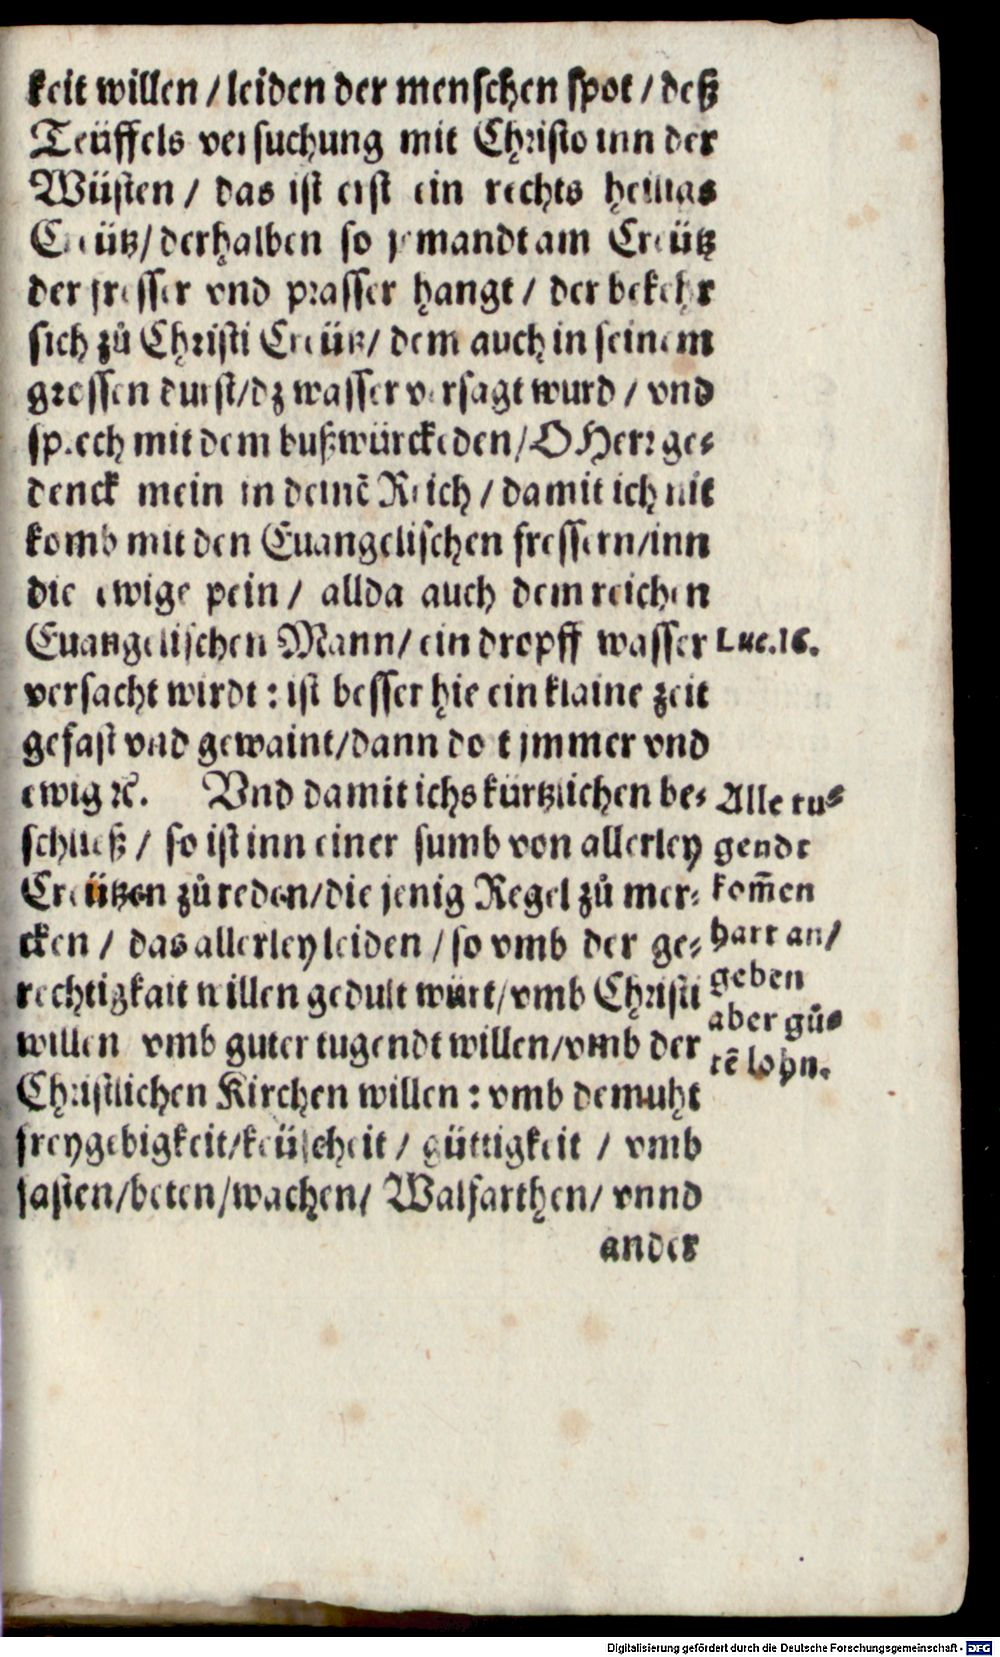 keit willen / leiden der menschen spot / deß
Teüffels versuchung mit Christo inn der
Wüsten / das ist erst ein rechts heiligs
Creütz / derhalben so jemandt am Creütz
der fresser vnd prasser hangt / der bekehr
sich zů Christi Creütz / dem auch in seinem
grossen durst / dz wasser versagt wurd / vnd
sprech mit dem bußwürckeden / O Herr ge⸗
denck mein in deinē Reich / damit ich nit
komb mit den Euangelischen fressern / inn
die ewige pein / allda auch dem reichen
Euangelischen Mann / ein dropff wasser
Luc. 16.
versacht wirdt : ist besser hie ein klaine zeit
gefast vnd gewaint / dann dort jmmer vnd
ewig ꝛc. Vnd damit ichs kürtzlichen be⸗
schließ / so ist inn einer sumb von allerley
Creützen zů reden / die jenig Regel zů mer⸗
cken / das allerley leiden / so vmb der ge⸗
rechtigkait willen gedult würt / vmb Christi
willen vmb guter tugendt willen / vmb der
Christlichen Kirchen willen : vmb demuht
freygebigkeit / keüscheit / güttigkeit / vmb
fasten / beten / wachen / Walfarthen / vnnd
ander
Alle tu⸗
gendt
kom̃en
hart an /
geben
aber gů⸗
tē lohn.
Digitalisierung gefördert durch die Deutsche Forschungsgemeinschaft - DFG